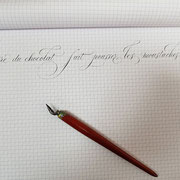 du chocolat fait pousser les moustaches